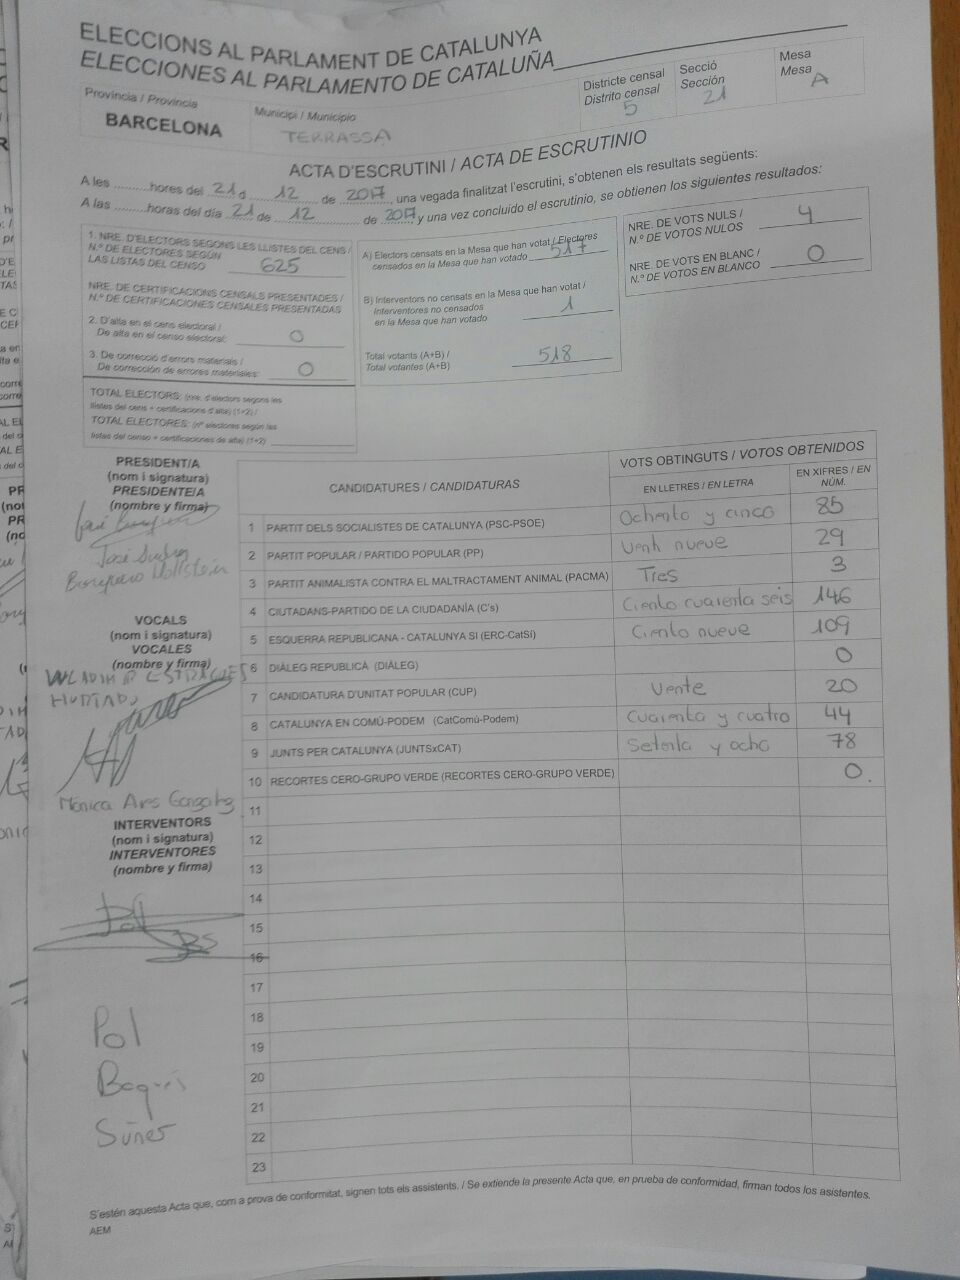 ELECCIONS AL PARLAMENT DE CATALUNYA
ELECCIONES AL PARLAMENTO DE CATALUÑA
Província / Provincia
BARCELONA
Municipi / Municipio
TERRASSA
Districte censal
Distrito censal
5
Secció
Sección
21
Mesa
Mesa
A
ACTA D'ESCRUTINI / ACTA DE ESCRUTINIO
A les ..........hores del 21 d 12 de 2017, una vegada finalitzat l'escrutini, s'obtenen els resultats següents:
A las ..........horas del día 21 de 12 de 2017, y una vez concluido el escrutinio, se obtienen los siguientes resultados:
1. NRE. D'ELECTORS SEGONS LES LLISTES DEL CENS /
N.º DE ELECTORES SEGÚN
LAS LISTAS DEL CENSO 625
NRE. DE CERTIFICACIONS CENSALS PRESENTADES /
N.º DE CERTIFICACIONES CENSALES PRESENTADAS
2. D'alta en el cens electoral /
De alta en el censo electoral: 0
3. De correcció d'errors materials /
De corrección de errores materiales: 0
TOTAL ELECTORS: (nre. d'electors segons les
llistes del cens + certificacions d'alta) (1+2) /
TOTAL ELECTORES: (nº electores según las
listas del censo + certificaciones de alta) (1+2)
A) Electors censats en la Mesa que han votat / Electores
censados en la Mesa que han votado 517
B) Interventors no censats en la Mesa que han votat /
Interventores no censados
en la Mesa que han votado 1
Total votants (A+B) /
Total votantes (A+B) 518
NRE. DE VOTS NULS /
N.º DE VOTOS NULOS 4
NRE. DE VOTS EN BLANC /
N.º DE VOTOS EN BLANCO 0
PRESIDENT/A
(nom i signatura)
PRESIDENTE/A
(nombre y firma)
José
VOCALS
(nom i signatura)
VOCALES
(nombre y firma)
HURTADO
Mònica
INTERVENTORS
(nom i signatura)
INTERVENTORES
(nombre y firma)
Pol
Súñer
CANDIDATURES / CANDIDATURAS
VOTS OBTINGUTS / VOTOS OBTENIDOS
EN LLETRES / EN LETRA
EN XIFRES / EN
NÚM.
1 PARTIT DELS SOCIALISTES DE CATALUNYA (PSC-PSOE) Ochenta y cinco 85
2 PARTIT POPULAR / PARTIDO POPULAR (PP) nueve 29
3 PARTIT ANIMALISTA CONTRA EL MALTRACTAMENT ANIMAL (PACMA) Tres 3
4 CIUTADANS-PARTIDO DE LA CIUDADANÍA (C's) Ciento cuarenta seis 146
5 ESQUERRA REPUBLICANA - CATALUNYA SÍ (ERC-CatSí) Ciento nueve 109
6 DIÀLEG REPUBLICÀ (DIÀLEG) 0
7 CANDIDATURA D'UNITAT POPULAR (CUP) Vente 20
8 CATALUNYA EN COMÚ-PODEM (CatComú-Podem) Cuarenta y cuatro 44
9 JUNTS PER CATALUNYA (JUNTSxCAT) Setenta y ocho 78
10 RECORTES CERO-GRUPO VERDE (RECORTES CERO-GRUPO VERDE) 0.
11
12
13
14
15
16
17
18
19
20
21
22
23
S'estén aquesta Acta que, com a prova de conformitat, signen tots els assistents. / Se extiende la presente Acta que, en prueba de conformidad, firman todos los asistentes.
AEM